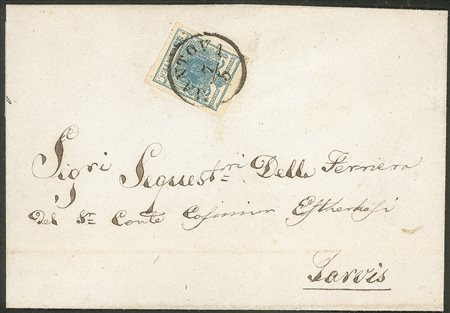 MANTOVA
Sigri Sequestri Della Ferriera
del Sr Conte Casimiro Esterhasi
Tarvis